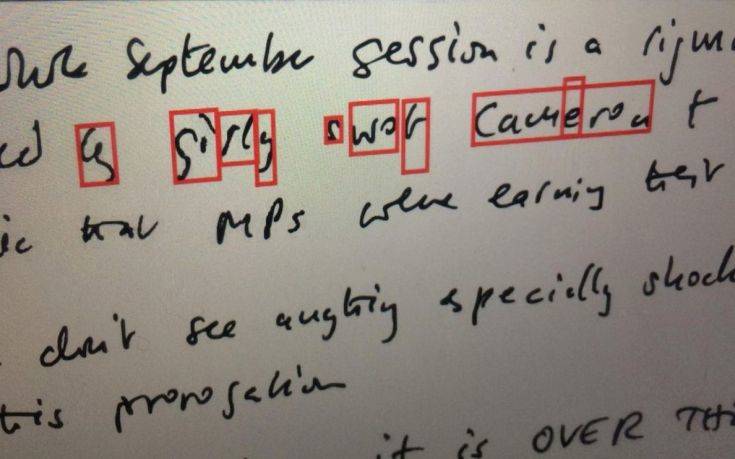 whole September session is a rigma
ed by girly swot Cameron t
ic that MPs were earning their
don't see anything especially shock
this prorogation
it is OVER THI